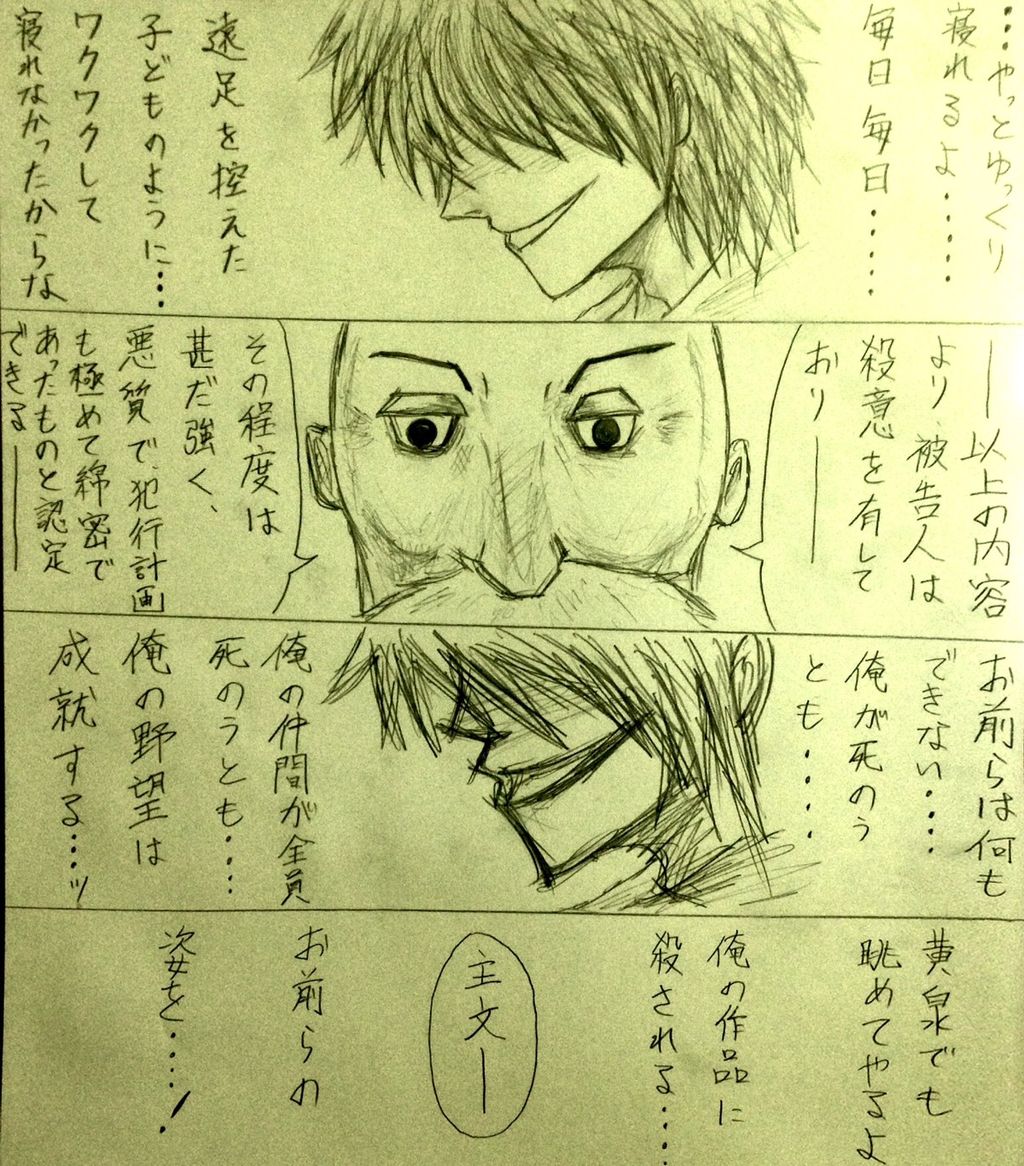 …やっとゆっくり
寝れるよ……
毎日毎日……
遠足を控えた
子どものように…
ワクワクして
寝れなかったからな
――以上の内容
より、被告人は
殺意を有して
おり――
その程度は
甚だ強く、
悪質で、犯行計画
も極めて綿密で
あったものと認定
できる――
お前らは何も
できない…
俺が死のう
とも……
俺の仲間が全員
死のうとも……
俺の野望は
成就する…ッ
黄泉でも
眺めてやるよ
俺の作品に
殺される……
主文―
お前らの
姿を……!